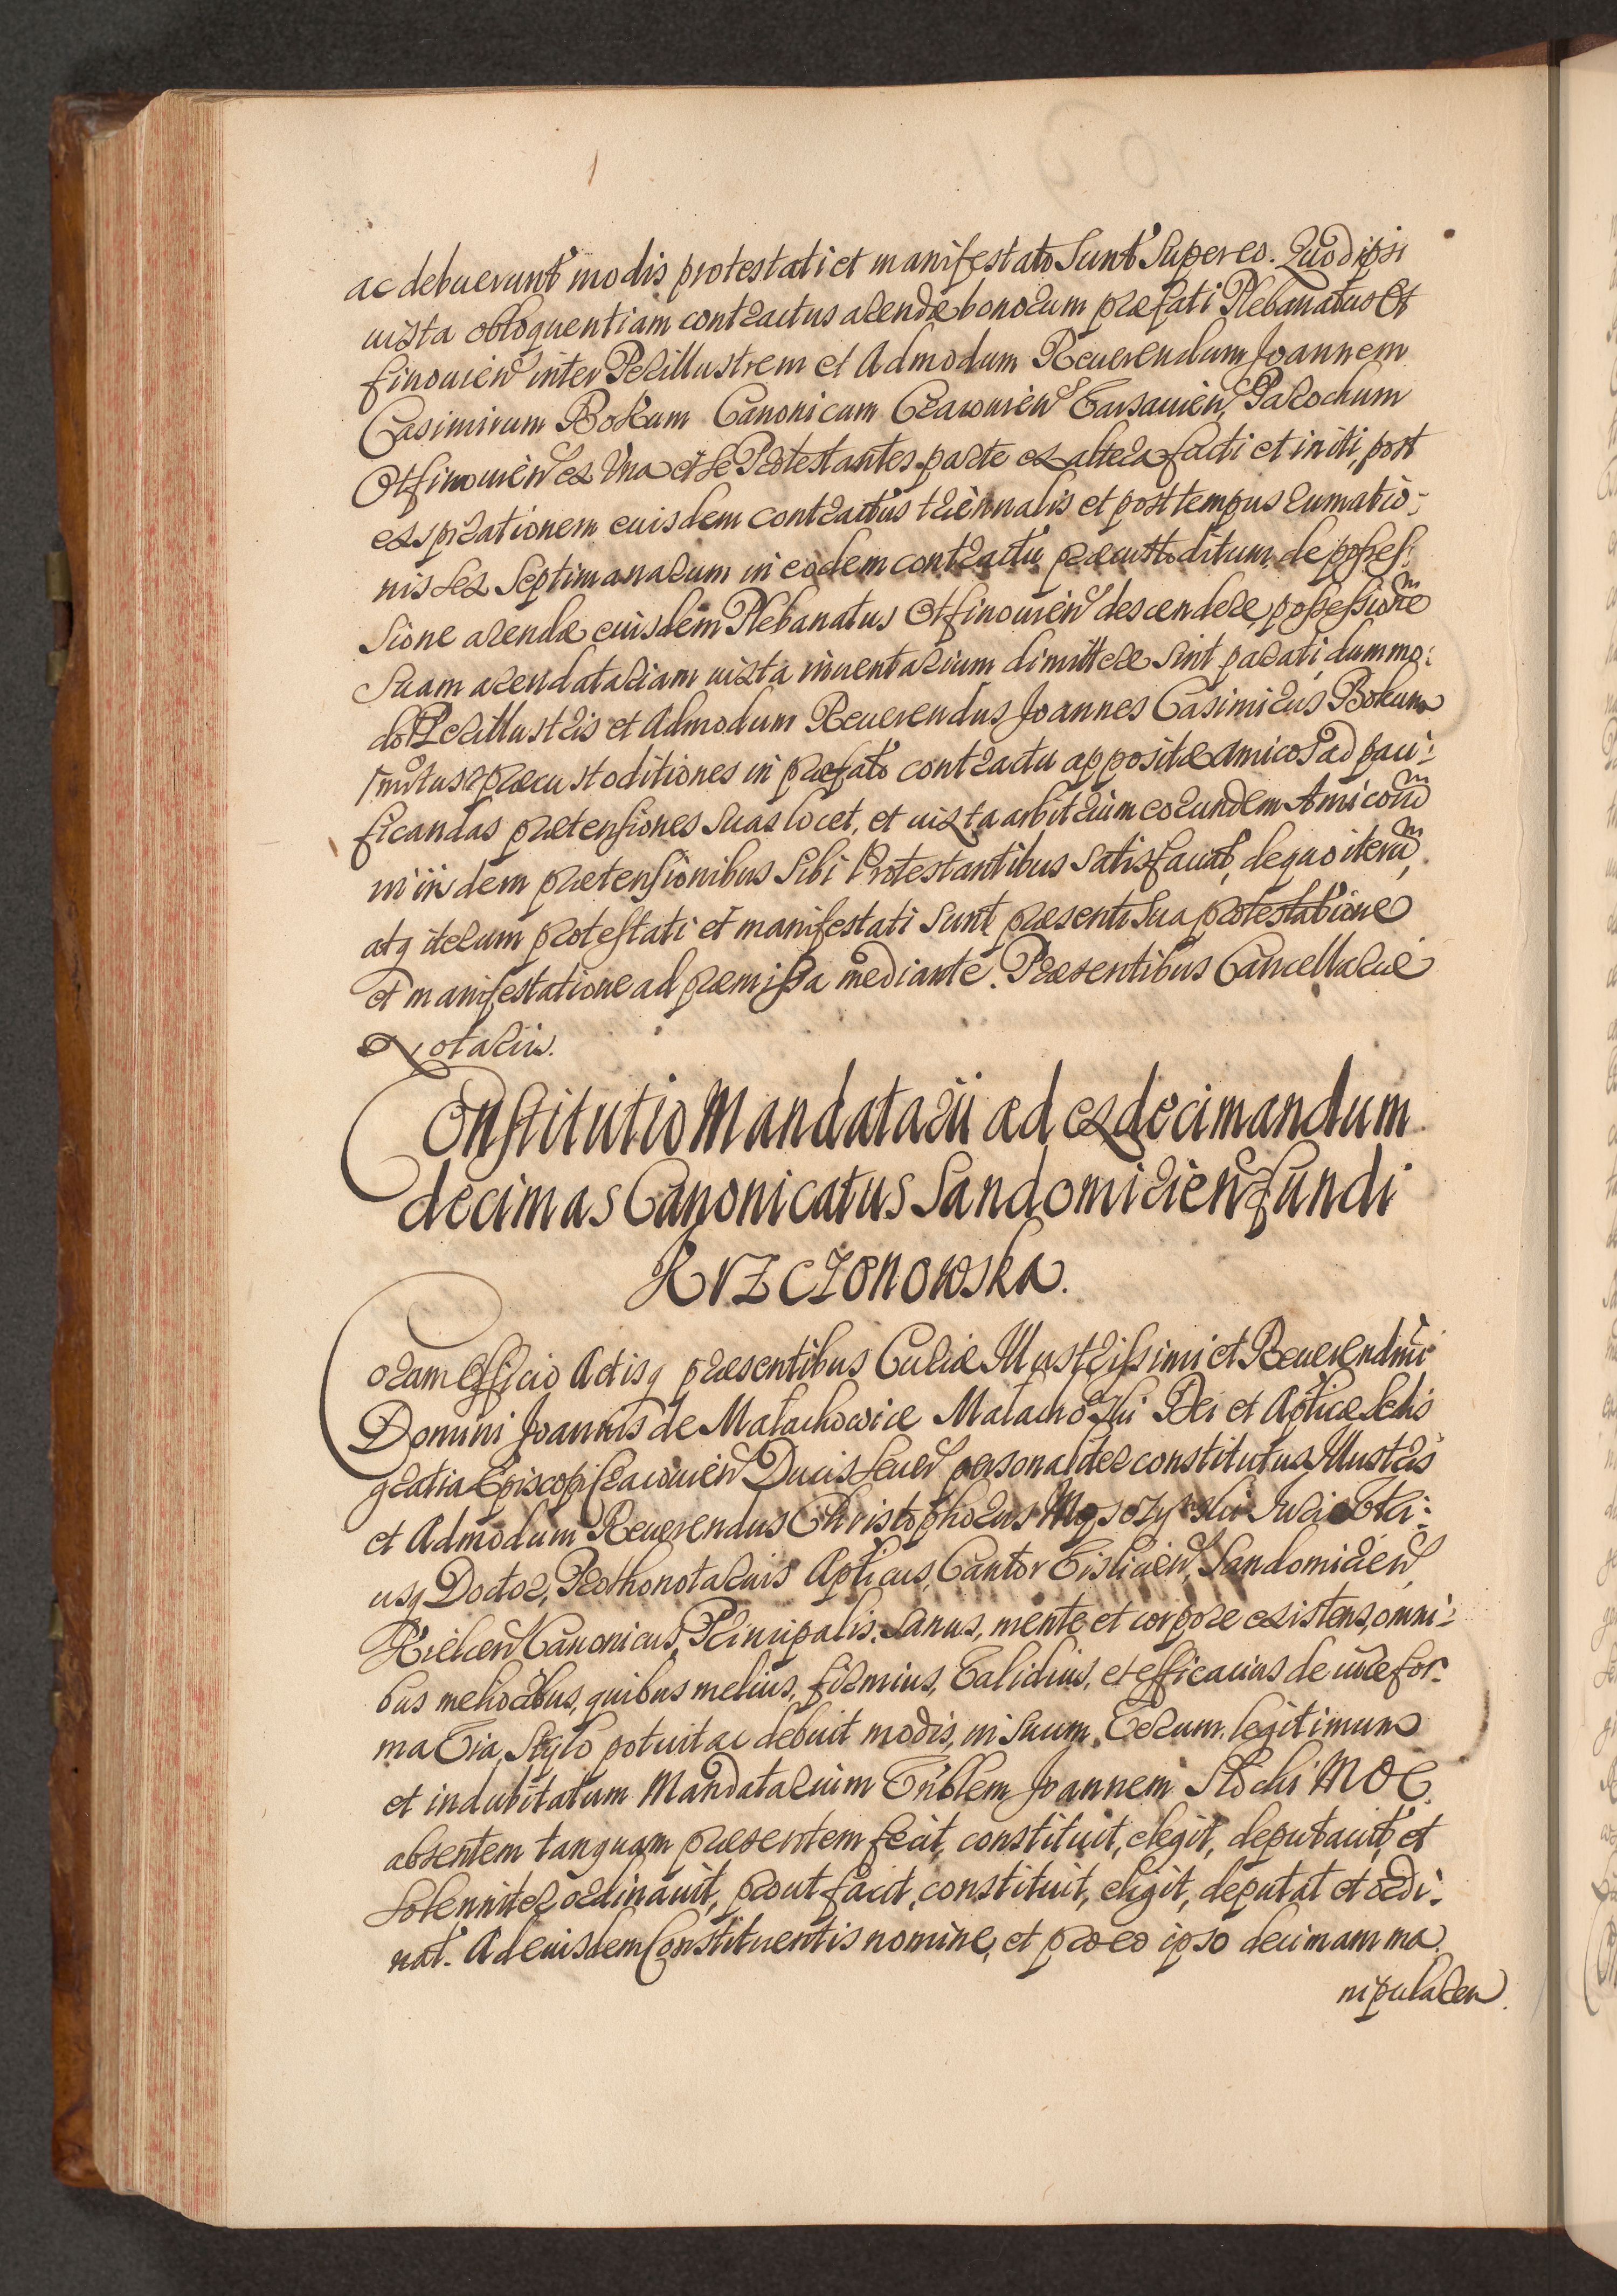 ac debuerunt modis protestati et manifestati Sunt Super eo. Quod ipsi
iuxta obloquentiam contractus arendæ bonorum præfati Plebanatus Ot
finouien inter Perillustrem et Admodum Reuerendum Joannem
Casimirum Bokum Canonicum Cracouien Varsauien, Parochum
Otfinouien ex Vna et se Protestantes parte ex altera facti et initi, post
exspirationem euisdem contractus triennalis et post tempus rumatio-
nis sex Septimanarum in eodem contractu præcustoditum, de posses-
sione arendæ euisdem Plebanatus Otfinouien descendere, possessionem
Suam arendatariam iuxta inuentarium dimittere sint parati, dummo:
do Perillustris et Admodum Reuerendus Joannes Casimirus Bokum
præcustoditiones in præfato contractu appositæ amicos ad paci:
ficandas prætensiones suas locet, et iuxta arbitrium eorundem Amicorum
in iisdem prætensionibus Sibi Protestantibus Satisfaciat, de quo iterum,
atq iterum protestati et manifestati sunt præsenti sua protestatione
et manifestatione ad præmissa mediante. Præsentibus Cancellariæ
Notariis.
Constitutio Mandatarii ad exdecimandum
decimas Canonicatus Sandomirien fundi
Krzczonowska.
Coram Officio Actisq præsentibus Curiæ Illustrissimi et Reuerendmi
Domini Joannis de Małachowice Małachowski Dei et Aplicæ Sedis
gratia Episcopi Cracouien Ducis Seuer personaliter constitutus Illustris
et Admodum Reuerendus Christophorus Juris Vtri:
usq Doctor, Prothonotarius Aplicus, Cantor Vislicien, Sandomirien,
Kielcen Canonicus, Principalis. Sanus, mente et corpore existens, omni:
bus melioribus, quibus melius, firmius, Validius, et efficacius de iure for-
ma Via, Stylo potuit ac debuit modis, in suum Verum legitimum
et indubitatum Mandatarium Vnblem Joannem MOC.
absentem tanquam præsentem fecit, constituit, elegit, deputauit, et
solenniter ordinauit, prout facit, constituit, eligit, deputat et ordi:
nat. Ad euisdem Constituentis nomine, et pro eo ipso decimam ma
nipularem